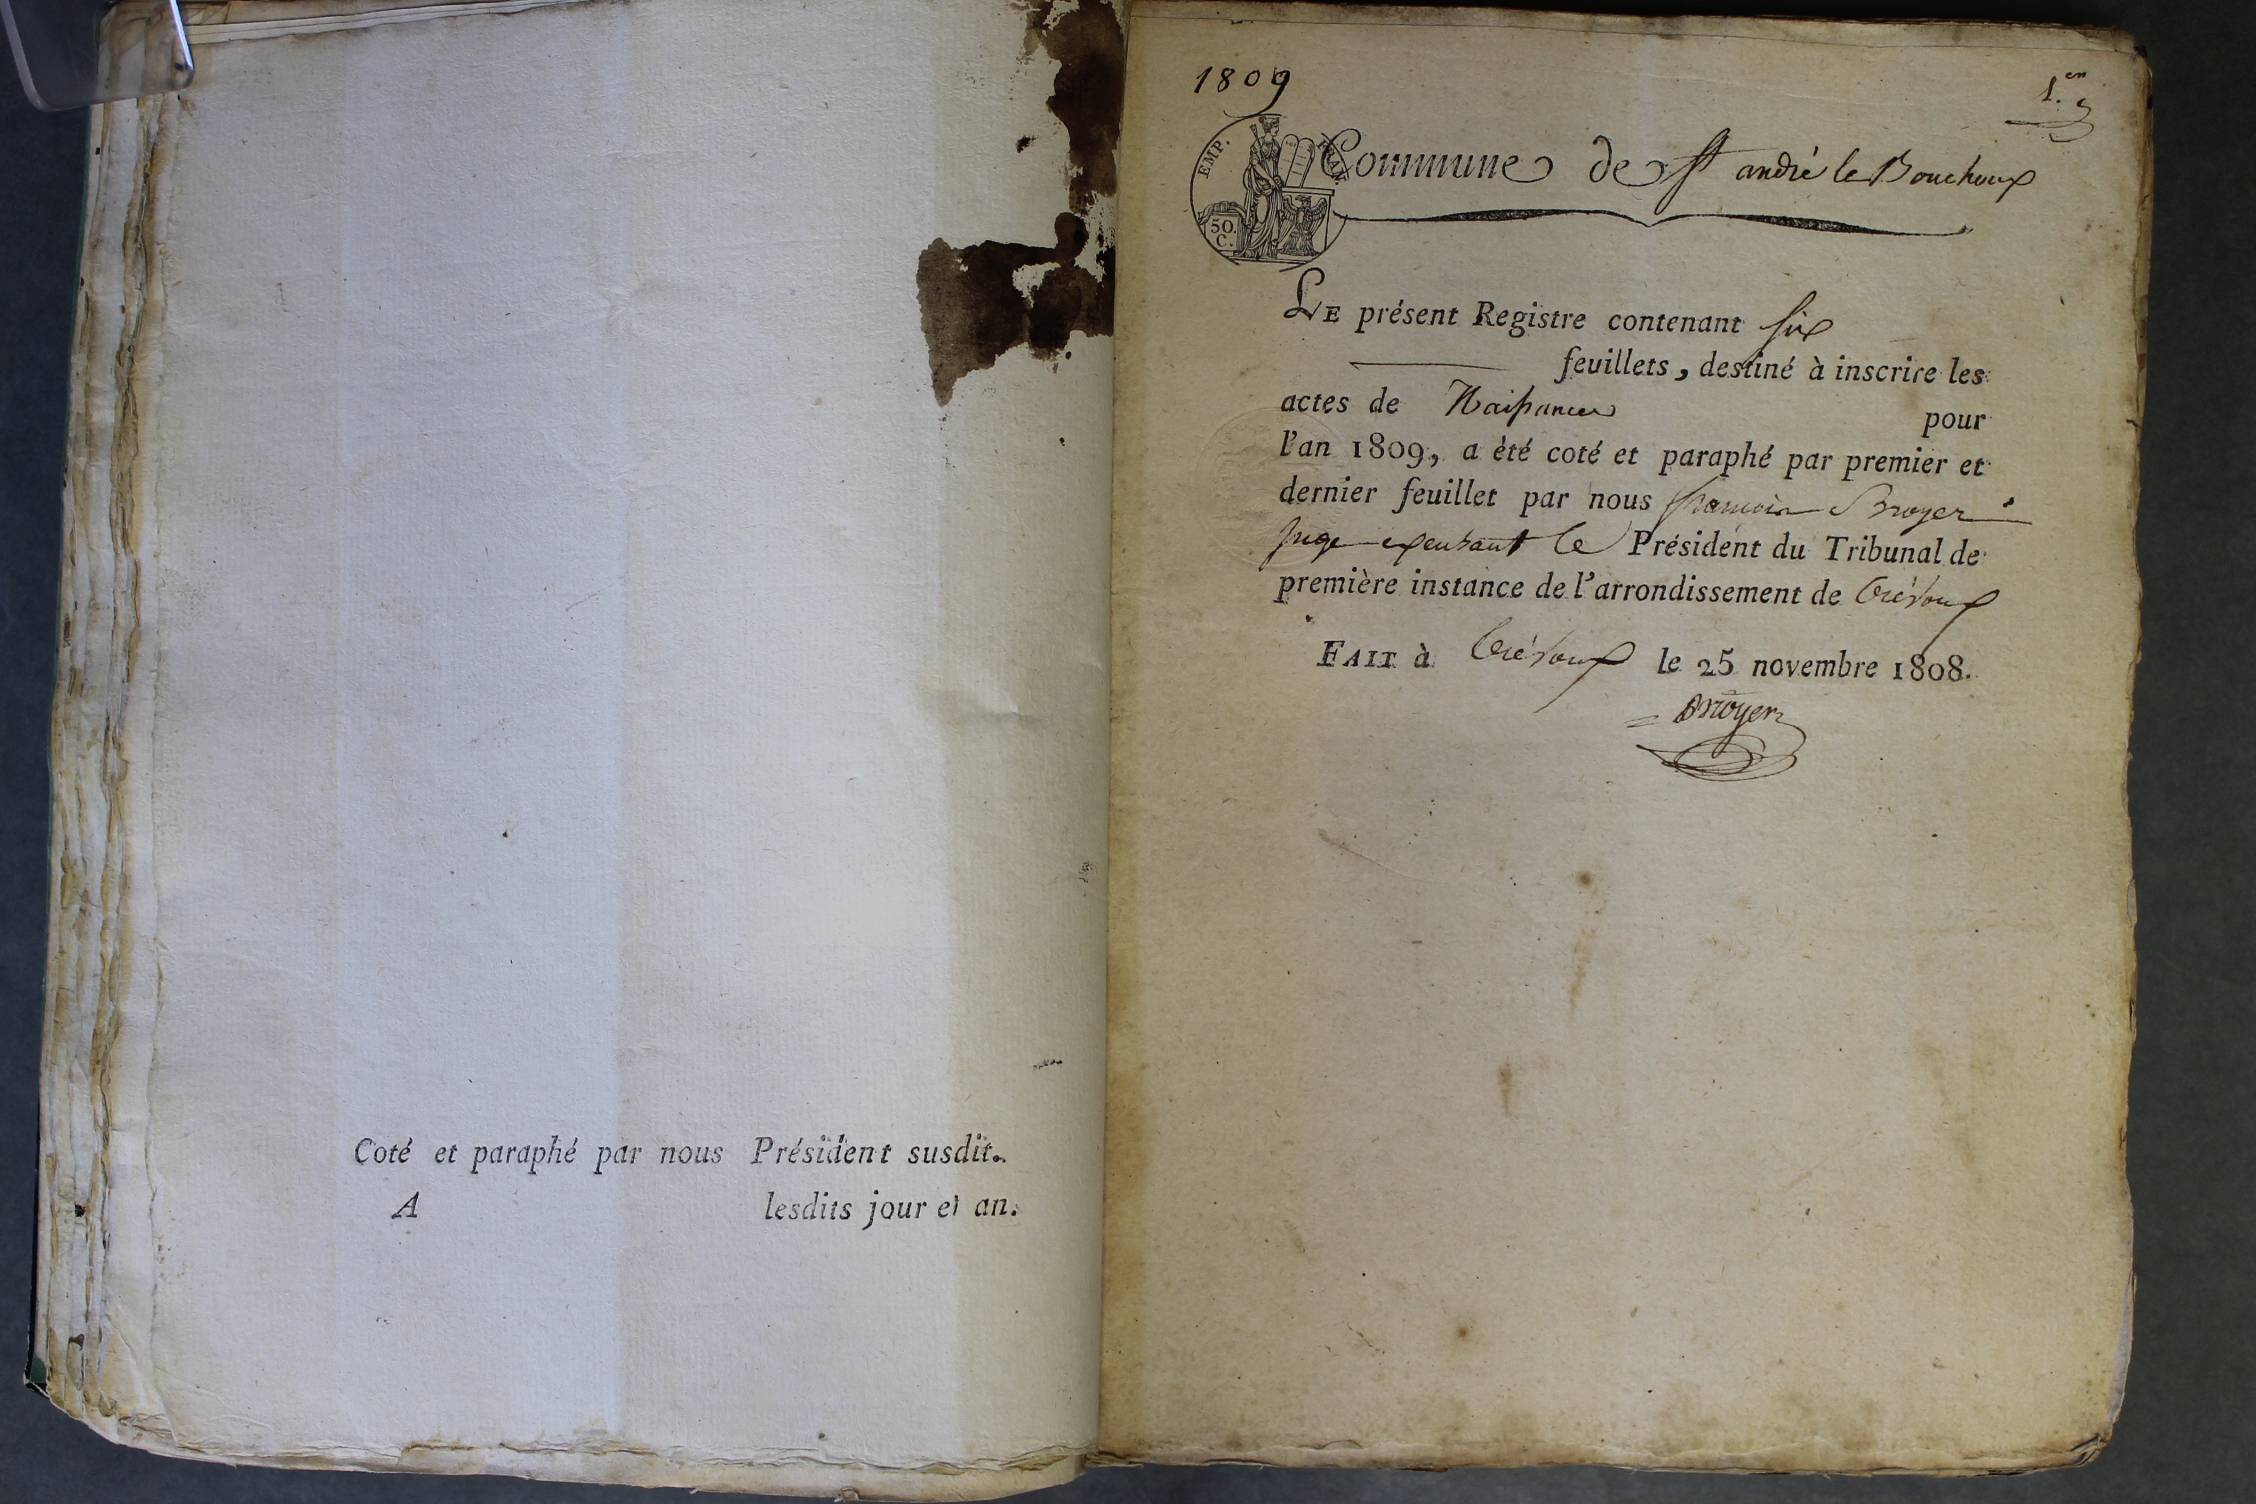 Coté et paraphé par nous Président susdit.
A lesdits jour et an.
1809
1.er
EMP. FRAN.
50.
C.
Commune de St andré le Bouchoux
LE présent Registre contenant six
feuillets, destiné à inscrire les
actes de Naissances pour
l'an 1809, a été coté et paraphé par premier et
dernier feuillet par nous francois Broyer
Juge exeusant le Président du Tribunal de
première instance de l'arrondissement de trévoux
FAIT à trévoux le 25 novembre 1808.
Broyer